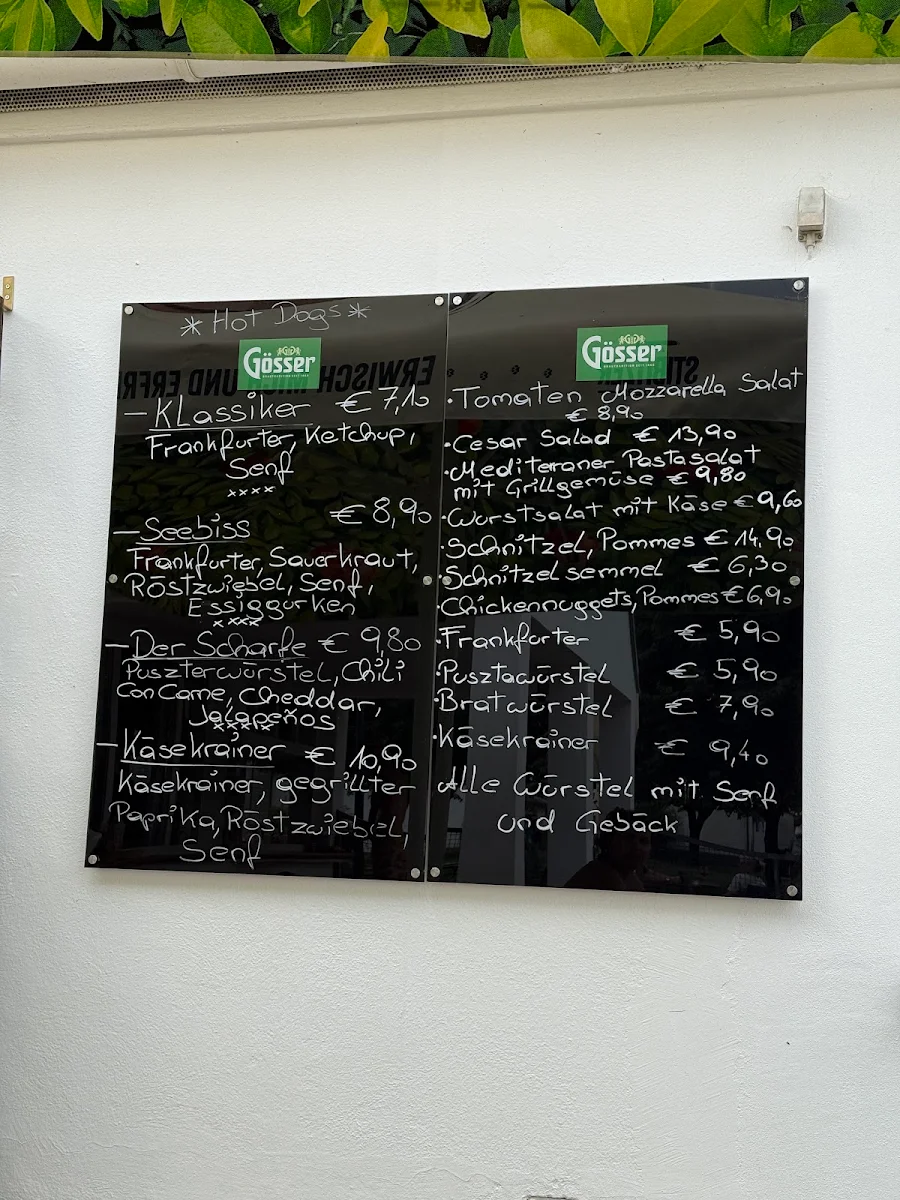 * Hot Dogs *
Gösser
– Klassiker € 7,10
Frankfurter, Ketchup,
Senf
xxxx
– Seebiss € 8,90
Frankfurter, Sauerkraut,
Röstzwiebel, Senf,
Essiggurken
xxxx
– Der Scharfe € 9,80
Puszterwürstel, Chili
Con Carne, Cheddar,
Jalapeños
xxxxx
– Käsekrainer € 10,90
Käsekrainer, gegrillter
Paprika, Röstzwiebel,
Senf
Gösser
· Tomaten Mozzarella Salat
€ 8,90
· Cesar Salad € 13,90
· Mediterraner Pastasalat
mit Grillgemüse € 9,80
· Wurstsalat mit Käse € 9,60
· Schnitzel, Pommes € 14,90
· Schnitzelsemmel € 6,30
· Chickennuggets, Pommes € 6,90
· Frankfurter € 5,90
· Pusztawürstel € 5,90
· Bratwürstel € 7,90
· Käsekrainer € 9,40
Alle Würstel mit Senf
und Gebäck